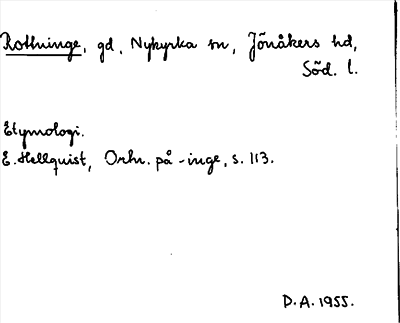 Rottninge, gd, Nykyrka sn, Jönåkers hd,
Söd. l.
Etymologi.
E. Hellquist, Ortn. på -inge, s. 113.
D.A. 1955.